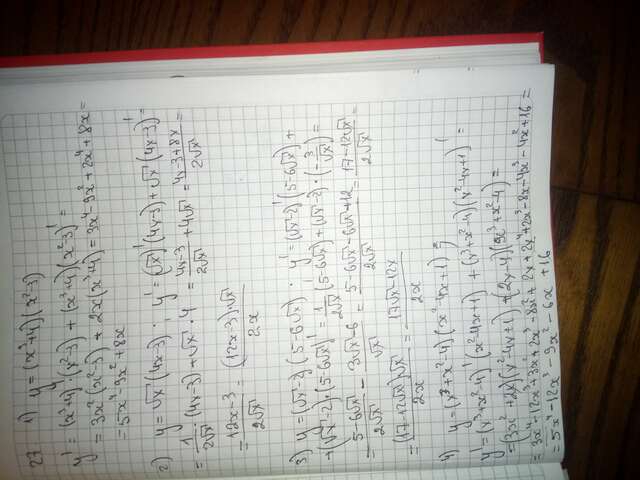 27 1) y = (x³+4)(x²-3)
y' = (x³+4)'(x²-3) + (x³+4)(x²-3)' =
= 3x²(x²-3) + 2x(x³+4) = 3x⁴-9x²+2x⁴+8x =
= 5x⁴-9x²+8x
2) y = √x (4x-3); y' = (√x)'(4x-3) + √x (4x-3)' =
= 1/(2√x) · (4x-3) + √x · 4 = (4x-3)/(2√x) + 4√x = (4x-3+8x)/(2√x) =
= (12x-3)/(2√x) = ((12x-3)√x)/(2x)
3) y = (√x-2)(5-6√x); y' = (√x-2)'(5-6√x) +
+ (√x-2)·(5-6√x)' = 1/(2√x) (5-6√x) + (√x-2)·(-3/√x) =
= (5-6√x)/(2√x) - (3√x-6)/√x = (5-6√x-6√x+12)/(2√x) = (17-12√x)/(2√x) =
= ((17-12√x)√x)/(2x) = (17√x-12x)/(2x)
4) y = (x³+x²-4)(x²-4x+1) =
y' = (x³+x²-4)'(x²-4x+1) + (x³+x²-4)(x²-4x+1)' =
= (3x²+2x)(x²-4x+1) + (2x-4)(x³+x²-4) =
= 3x⁴-12x³+3x²+2x³-8x²+2x+2x⁴+2x³-8x-4x³-4x²+16 =
= 5x⁴-12x³-9x²-6x+16